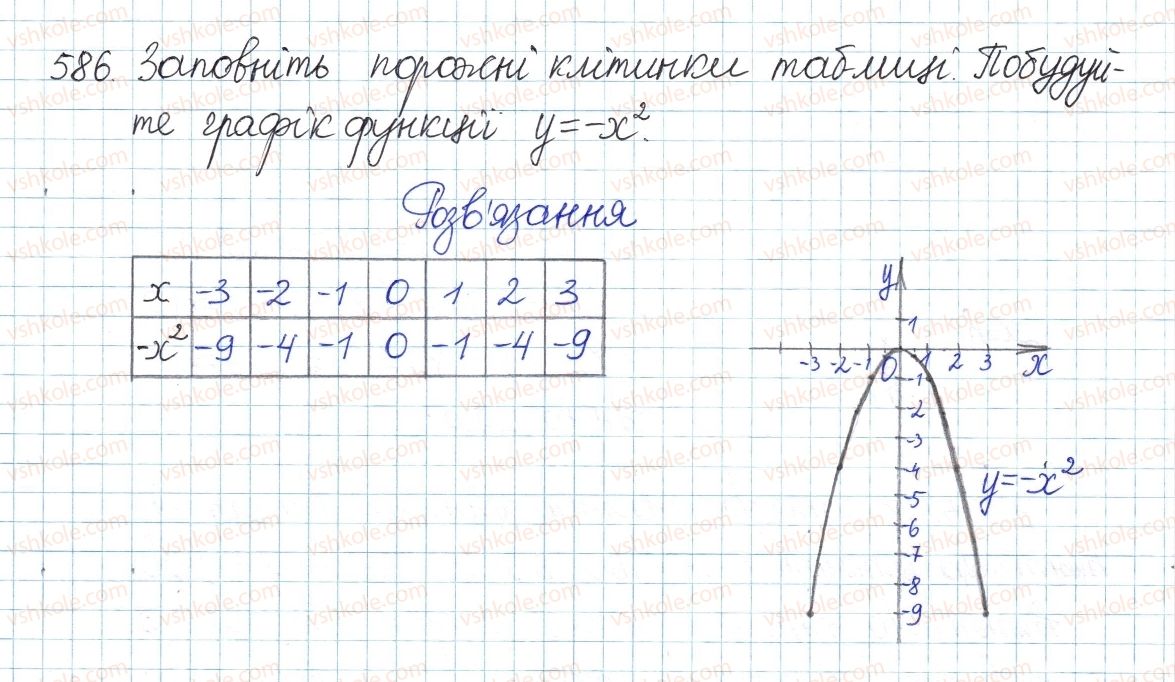 586. Заповніть порожні клітинки таблиці. Побудуй-
те графік функції y=-x².
Розв'язання
x -3 -2 -1 0 1 2 3
-x² -9 -4 -1 0 -1 -4 -9
y
1
-3 -2 -1 0 1 2 3 x
-1
-2
-3
-4
y=-x²
-5
-6
-7
-8
-9
vshkole.com